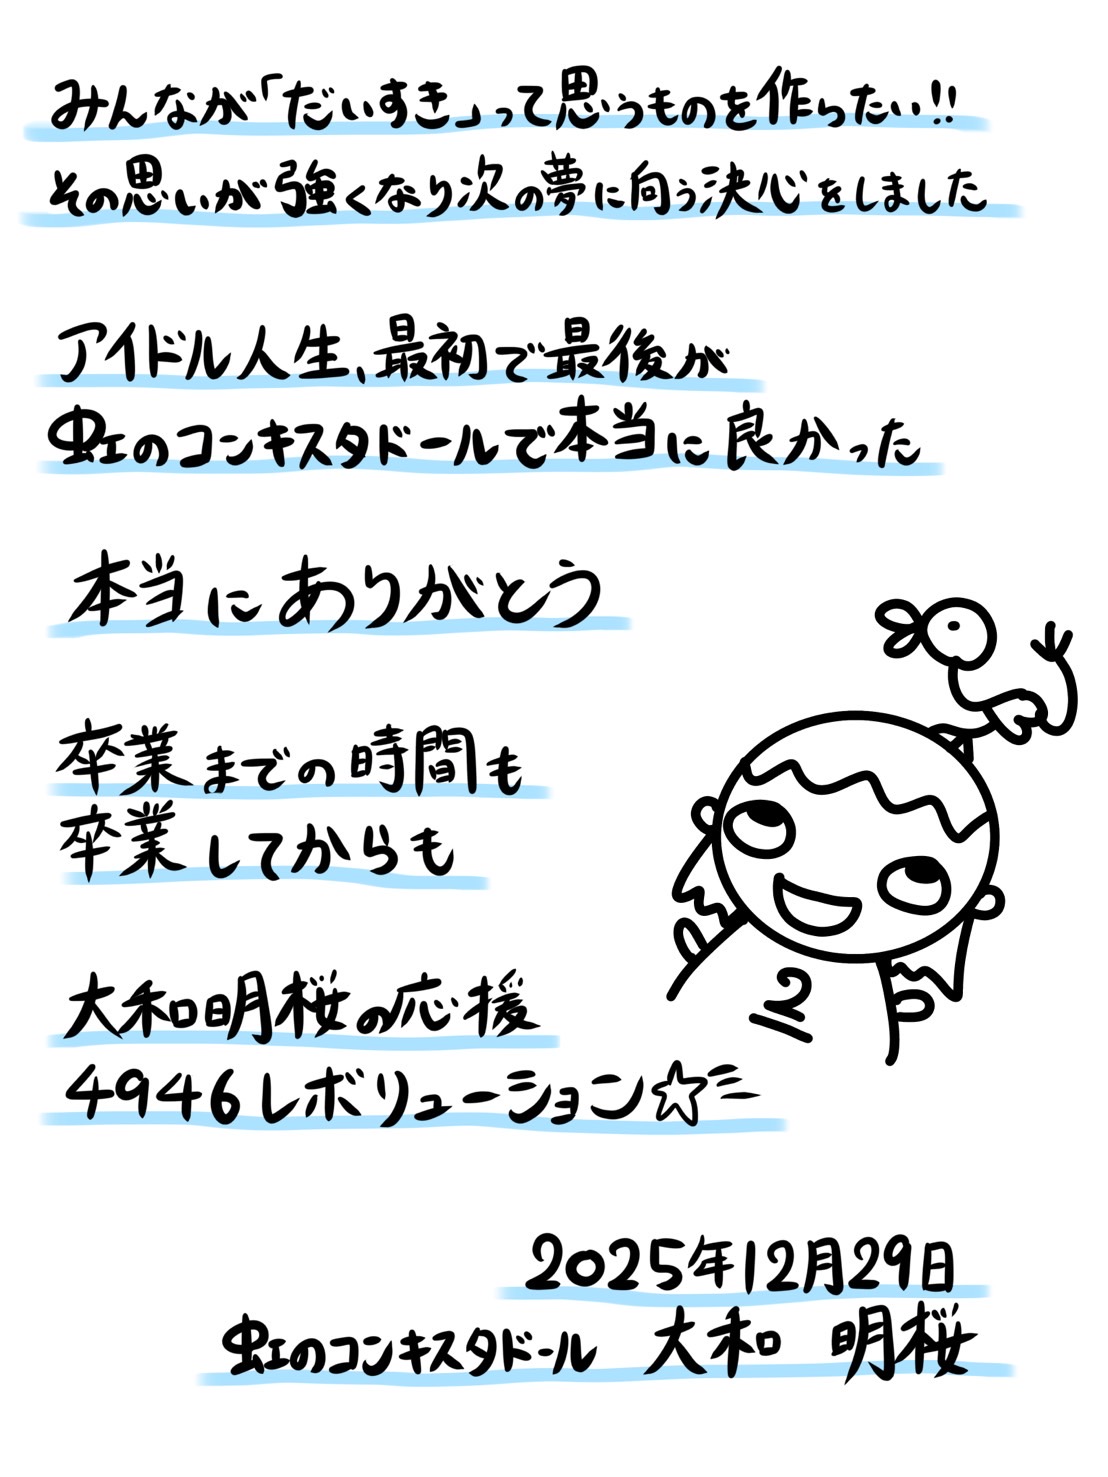 みんなが「だいすき」って思うものを作らたい!!
その思いが強くなり次の夢に向う決心をしました
アイドル人生、最初で最後が
虹のコンキスタドールで本当に良かった
本当にありがとう
卒業までの時間も
卒業してからも
大和明桜の応援
4946レボリューション☆ミ
2
2025年12月29日
虹のコンキスタドール 大和 明桜